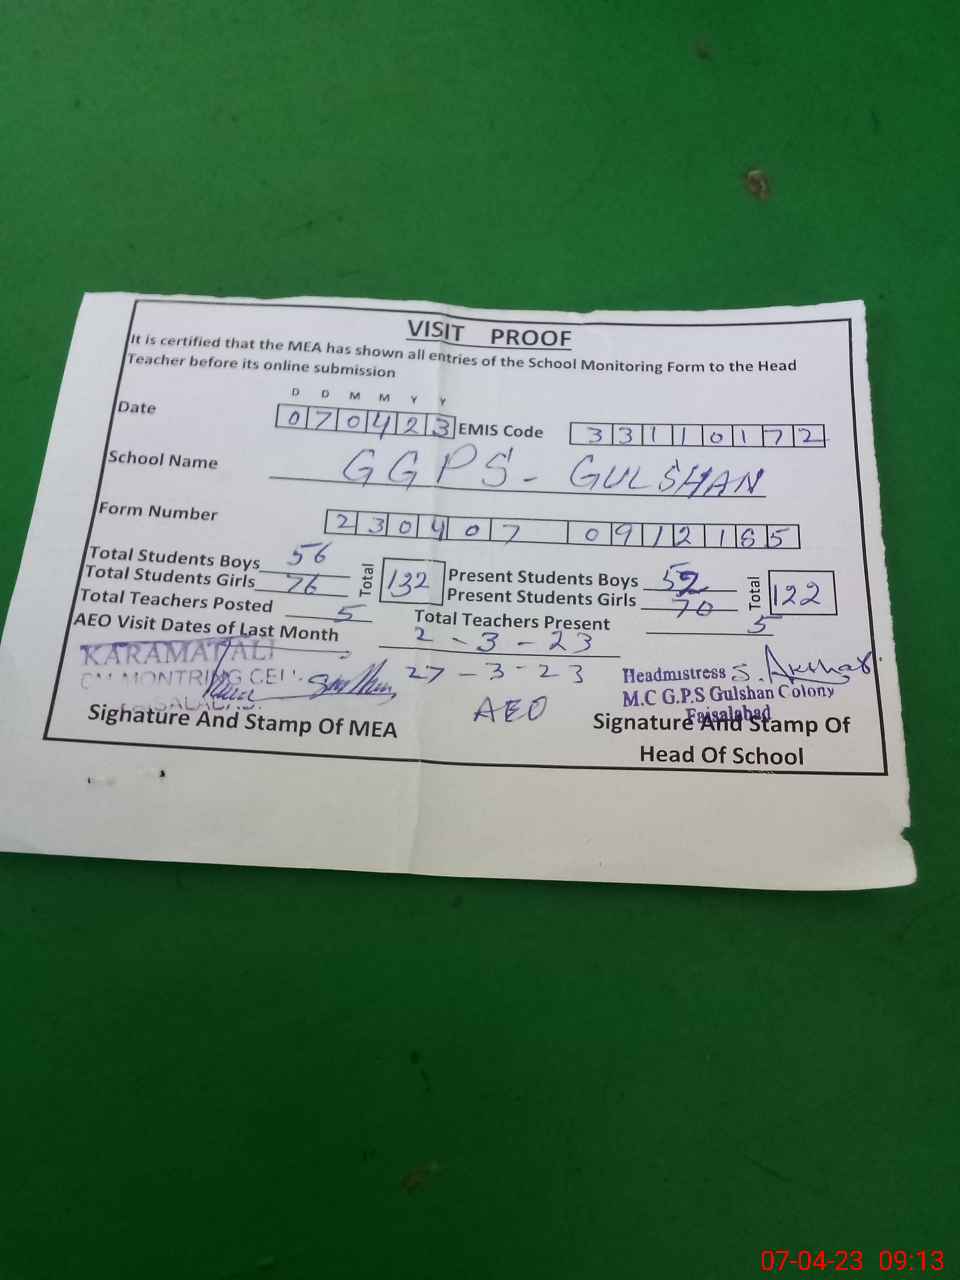 VISIT PROOF
It is certified that the MEA has shown all entries of the School Monitoring Form to the Head
Teacher before its online submission
D D M M Y Y
Date 070423 EMIS Code 33110172
School Name GGPS - GULSHAN
Form Number 230407 0912185
Total Students Boys 56 Total 132 Present Students Boys 52 Total 122
Total Students Girls 76 Present Students Girls 70
Total Teachers Posted 5 Total Teachers Present 5
AEO Visit Dates of Last Month 2-3-23
27-3-23
AEO
KARAMAT ALI
CM MONTRING CELL
FAISALABAD.
Signature And Stamp Of MEA
Headmistress
M.C G.P.S Gulshan Colony
Faisalabad
Signature And Stamp Of
Head Of School
07-04-23 09:13